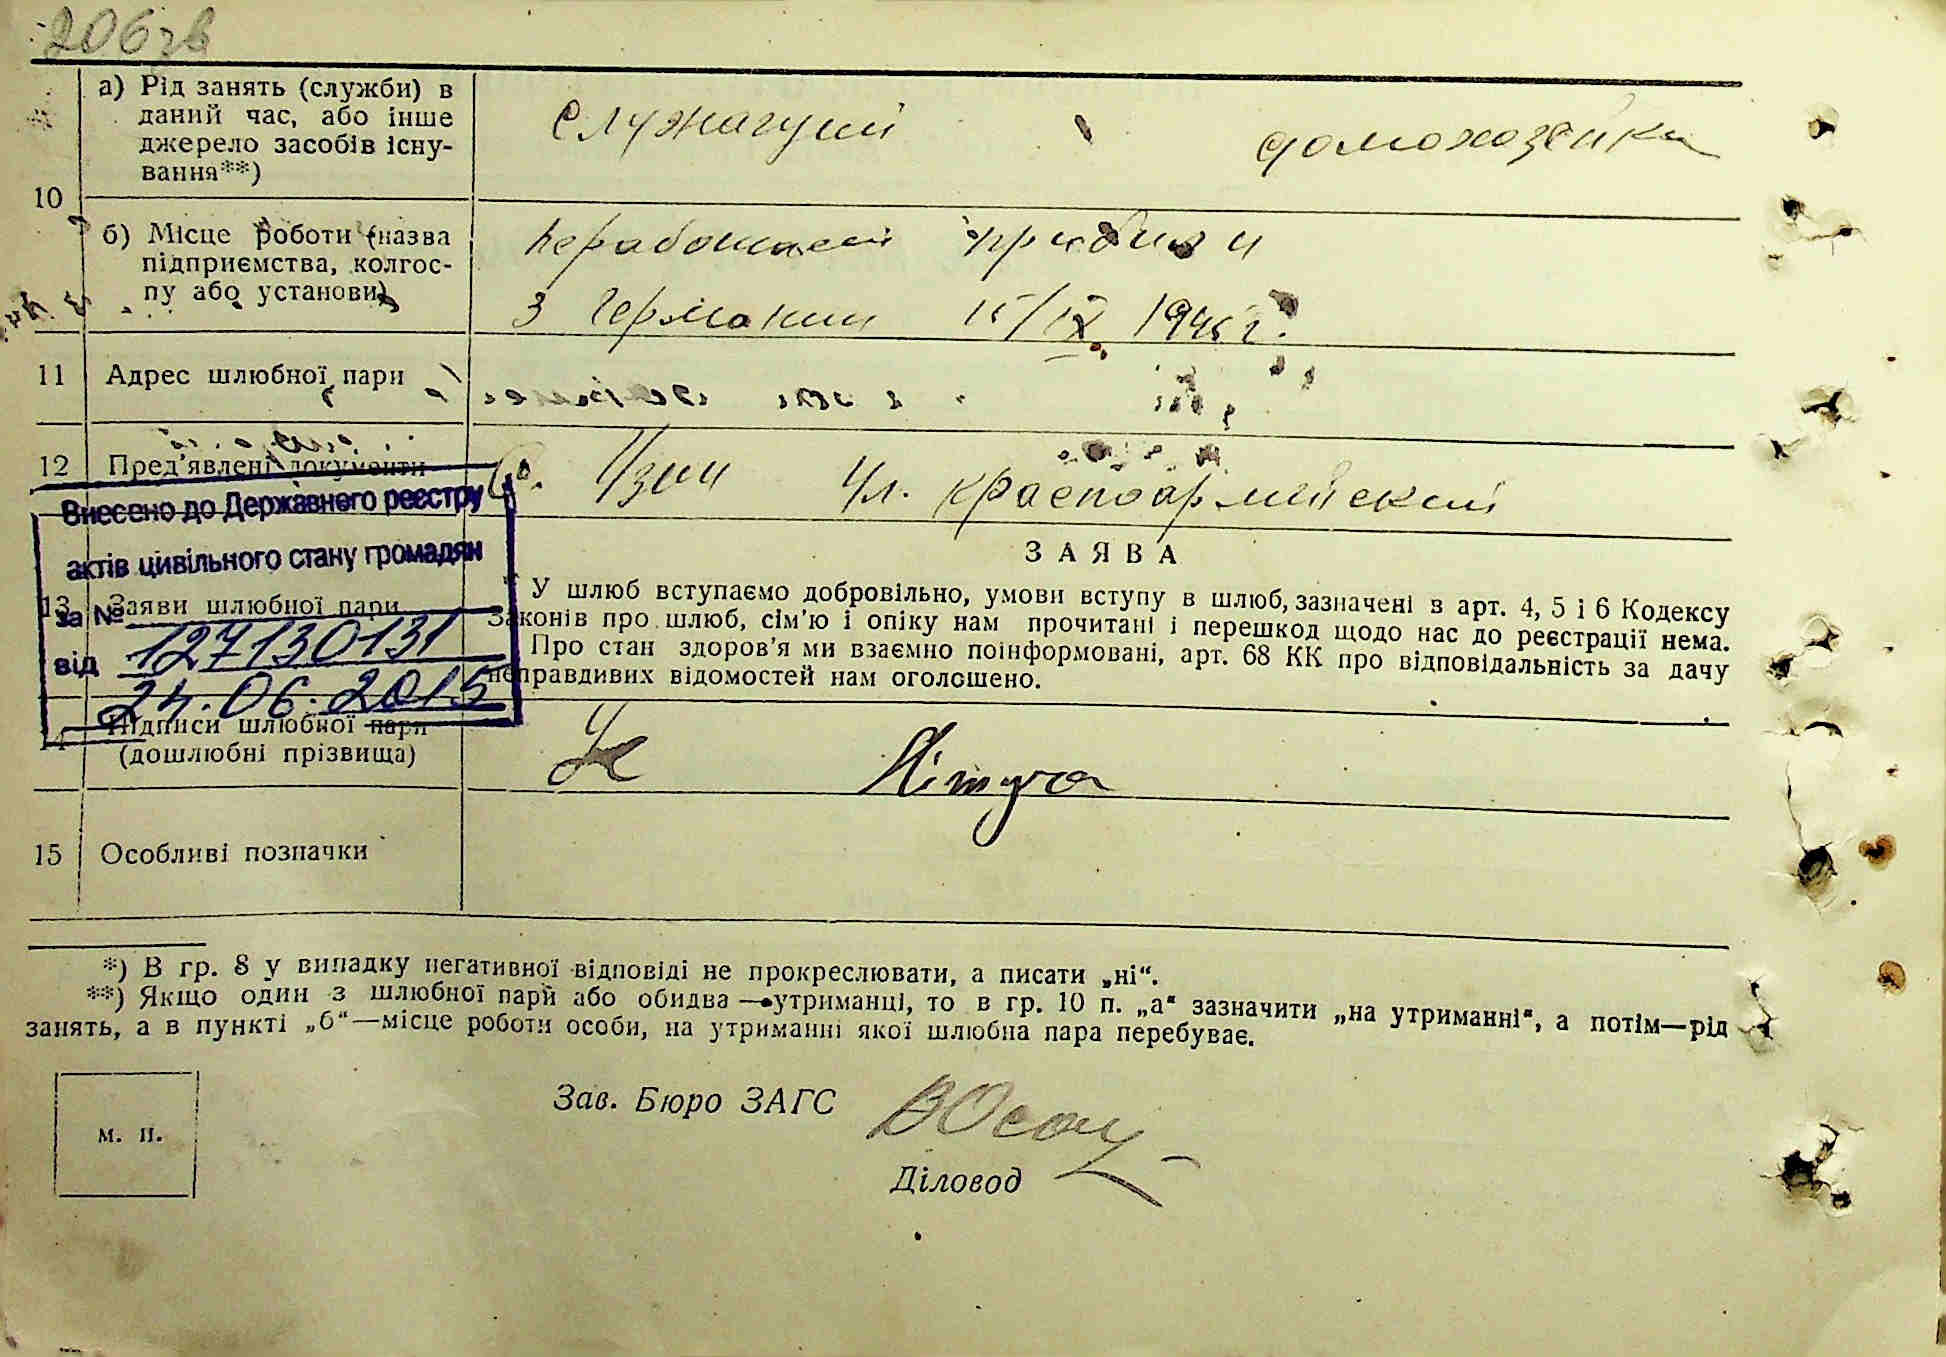 206зв
а) Рід занять (служби) в
даний час, або інше
джерело засобів існу-
вання**)
служащий домохозейка
10
б) Місце роботи (назва
підприємства, колгос-
пу або установи)
неработаем прибили
з Германии 15/IX 1945 г.
11 Адрес шлюбної пари
12 Пред'явлені документи
с. Узин Ул. красноармейский
Внесено до Державного реєстру
актів цивільного стану громадян
за № 127130131
від 24.06.2015
13 Заяви шлюбної пари
ЗАЯВА
У шлюб вступаємо добровільно, умови вступу в шлюб, зазначені в арт. 4, 5 і 6 Кодексу
Законів про шлюб, сім'ю і опіку нам прочитані і перешкод щодо нас до реєстрації нема.
Про стан здоров'я ми взаємно поінформовані, арт. 68 КК про відповідальність за дачу
неправдивих відомостей нам оголошено.
14 Підписи шлюбної пари
(дошлюбні прізвища)
15 Особливі позначки
*) В гр. 8 у випадку негативної відповіді не прокреслювати, а писати „ні“.
**) Якщо один з шлюбної пари або обидва — утриманці, то в гр. 10 п. „а“ зазначити „на утриманні“, а потім—рід
занять, а в пункті „б“—місце роботи особи, на утриманні якої шлюбна пара перебуває.
Зав. Бюро ЗАГС
м. п.
Діловод